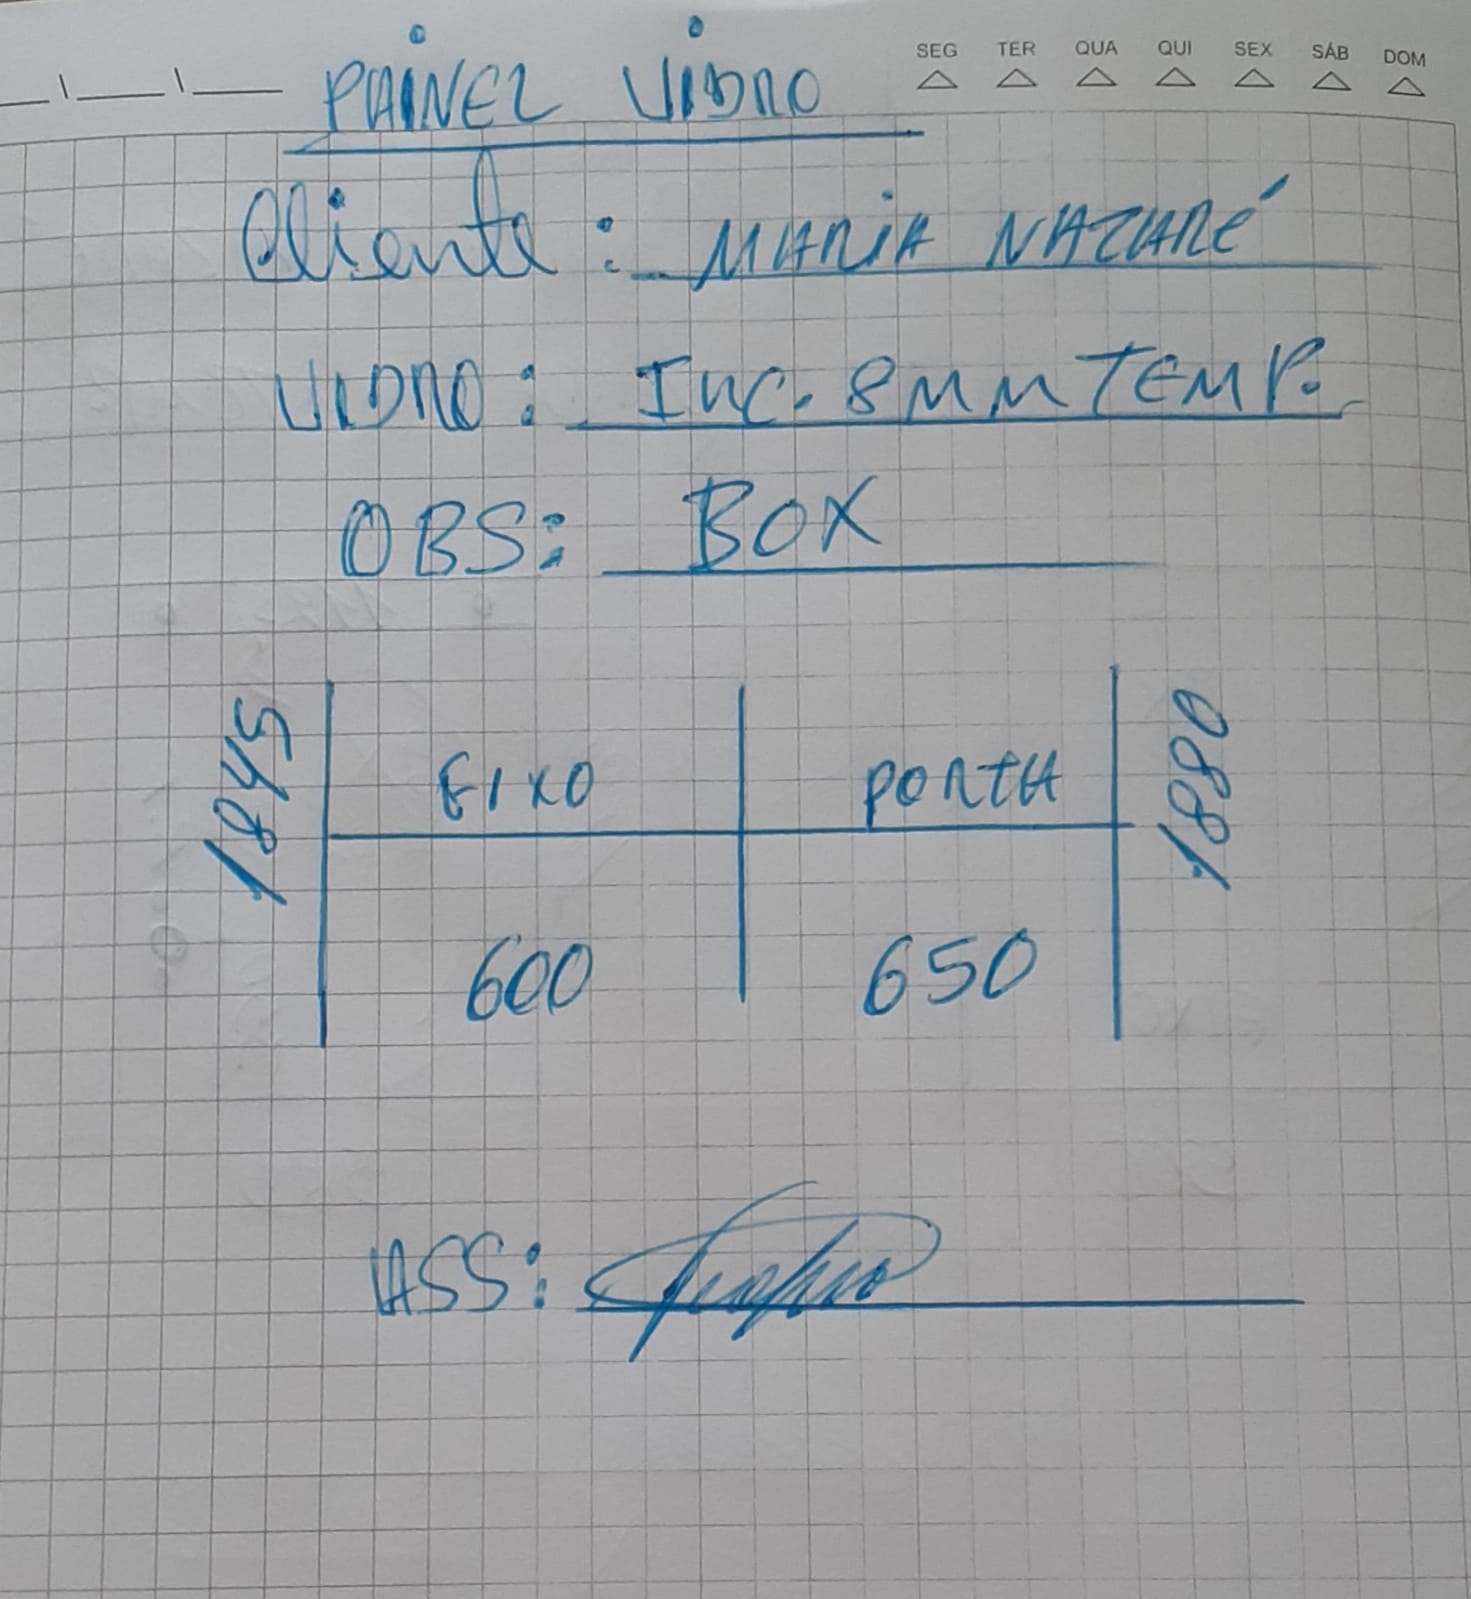 SEG TER QUA QUI SEX SÁB DOM
PAINEL VIDRO
Cliente: MARIA NAZARÉ
VIDRO: INC. 8MM TEMP.
OBS: BOX
1845
FIXO
PORTA
1880
600
650
ASS: